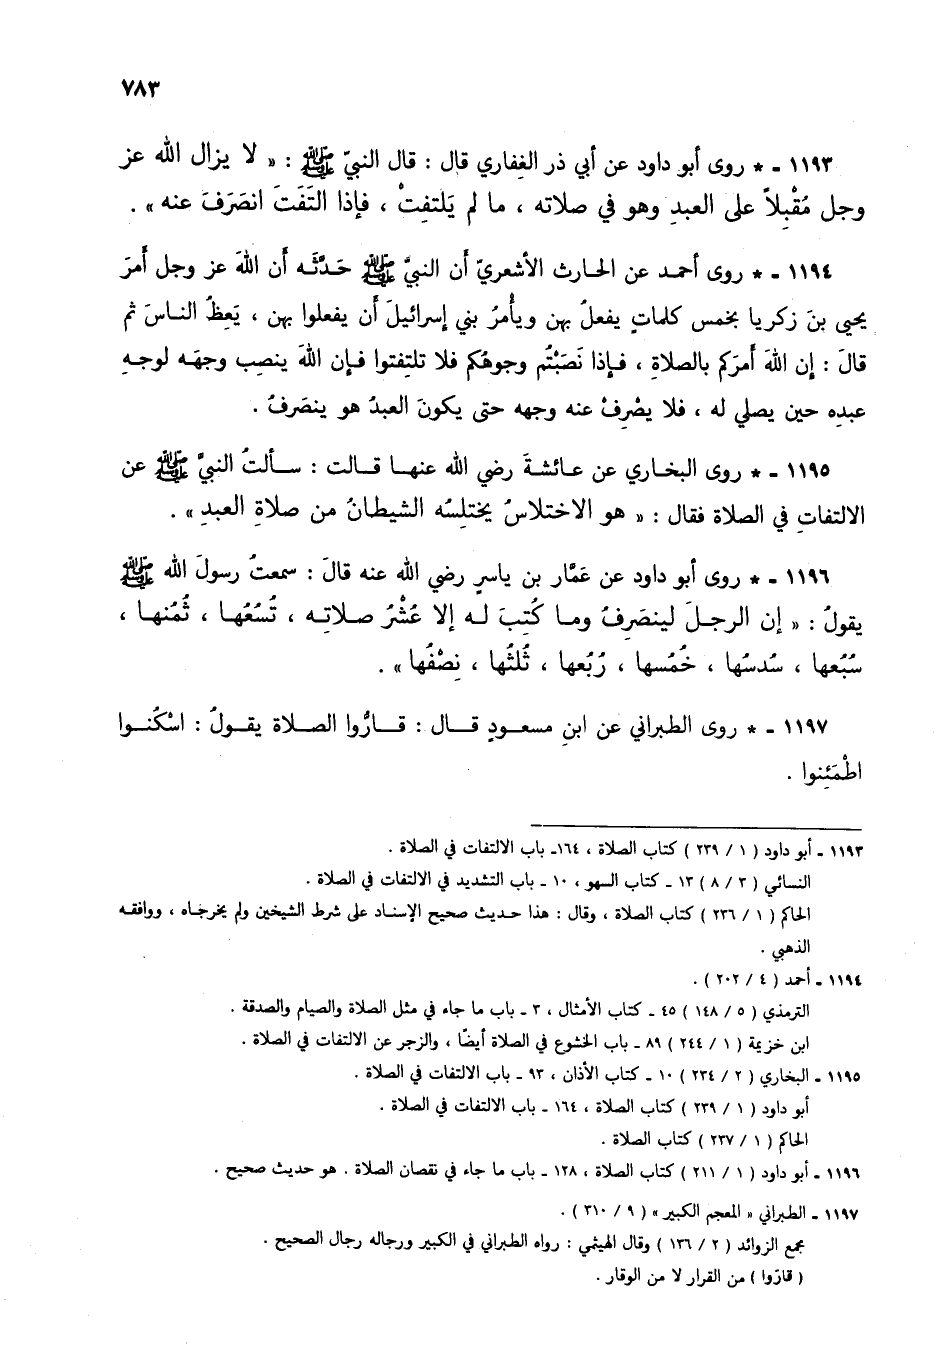 ٧٨٣
١١٩٣ - * روى أبو داود عن أبي ذر الغفاري قال : قال النبيّ ﷺ : « لا يزال الله عز
وجل مُقْبِلاً على العبدِ وهو في صلاته ، ما لم يَلتفِتْ ، فإذا التَفَتَ انصَرَفَ عنه » .
١١٩٤ - * روى أحمد عن الحارث الأشعريّ أن النبيَّ ﷺ حَدَّثَه أن اللهَ عز وجل أَمرَ
يحيى بنَ زكريا بخمسِ كلماتٍ يفعلُ بهن ويأْمرُ بني إسرائيلَ أن يفعلوا بهن ، يَعظُ الناسَ ثم
قالَ : إن اللهَ أمرَكم بالصلاةِ ، فإذا نَصَبْتُم وجوهُكم فلا تلتفِتوا فإن اللهَ ينصِب وجهَه لوجهِ
عبدِه حين يصلي له ، فلا يصْرِفْ عنه وجهه حتى يكونَ العبدُ هو ينصَرفُ .
١١٩٥ - * روى البخاري عن عائشةَ رضي الله عنها قالت : سألتُ النبيَّ ﷺ عن
الالتفاتِ في الصلاة فقال : « هو الاختلاسُ يختلِسُه الشيطانُ من صلاةِ العبدِ » .
١١٩٦ - * روى أبو داود عن عَمَّار بن ياسرٍ رضي الله عنه قالَ : سمعتُ رسولَ الله ﷺ
يقولُ : « إن الرجلَ لينصَرِفُ وما كُتِبَ له إلا عُشْرُ صلاتِه ، تُسُعُها ، ثُمُنها ،
سُبُعها ، سُدسُها ، خُمُسها ، رُبُعها ، ثُلثُها ، نِصْفُها » .
١١٩٧ - * روى الطبراني عن ابنِ مسعودٍ قال : قارُّوا الصلاة يقولُ : اسْكُنوا
اطْمَئِنوا .
١١٩٣ - أبو داود ( ١ / ٢٣٩ ) كتاب الصلاة ، ١٦٤- باب الالتفات في الصلاة .
النسائي ( ٣ / ٨ ) ١٣ - كتاب السهو ، ١٠ - باب التشديد في الالتفات في الصلاة .
الحاكم ( ١ / ٢٣٦ ) كتاب الصلاة ، وقال : هذا حديث صحيح الإسناد على شرط الشيخين ولم يخرجاه ، ووافقه
الذهبي .
١١٩٤ - أحمد ( ٤ / ٢٠٢ ) .
الترمذي ( ٥ / ١٤٨ ) ٤٥ - كتاب الأمثال ، ٣ - باب ما جاء في مثل الصلاة والصيام والصدقة .
ابن خزيمة ( ١ / ٢٤٤ ) ٨٩ - باب الخشوع في الصلاة أيضًا ، والزجر عن الالتفات في الصلاة .
١١٩٥ - البخاري ( ٢ / ٢٣٤ ) ١٠ - كتاب الأذان ، ٩٣ - باب الالتفات في الصلاة .
أبو داود ( ١ / ٢٣٩ ) كتاب الصلاة ، ١٦٤ - باب الالتفات في الصلاة .
الحاكم ( ١ / ٢٣٧ ) كتاب الصلاة .
١١٩٦ - أبو داود ( ١ / ٢١١ ) كتاب الصلاة ، ١٢٨ - باب ما جاء في نقصان الصلاة . هو حديث صحيح .
١١٩٧ - الطبراني « المعجم الكبير » ( ٩ / ٣١٠ ) .
مجمع الزوائد ( ٢ / ١٣٦ ) وقال الهيثمي : رواه الطبراني في الكبير ورجاله رجال الصحيح .
( قارّوا ) من القرار لا من الوقار .